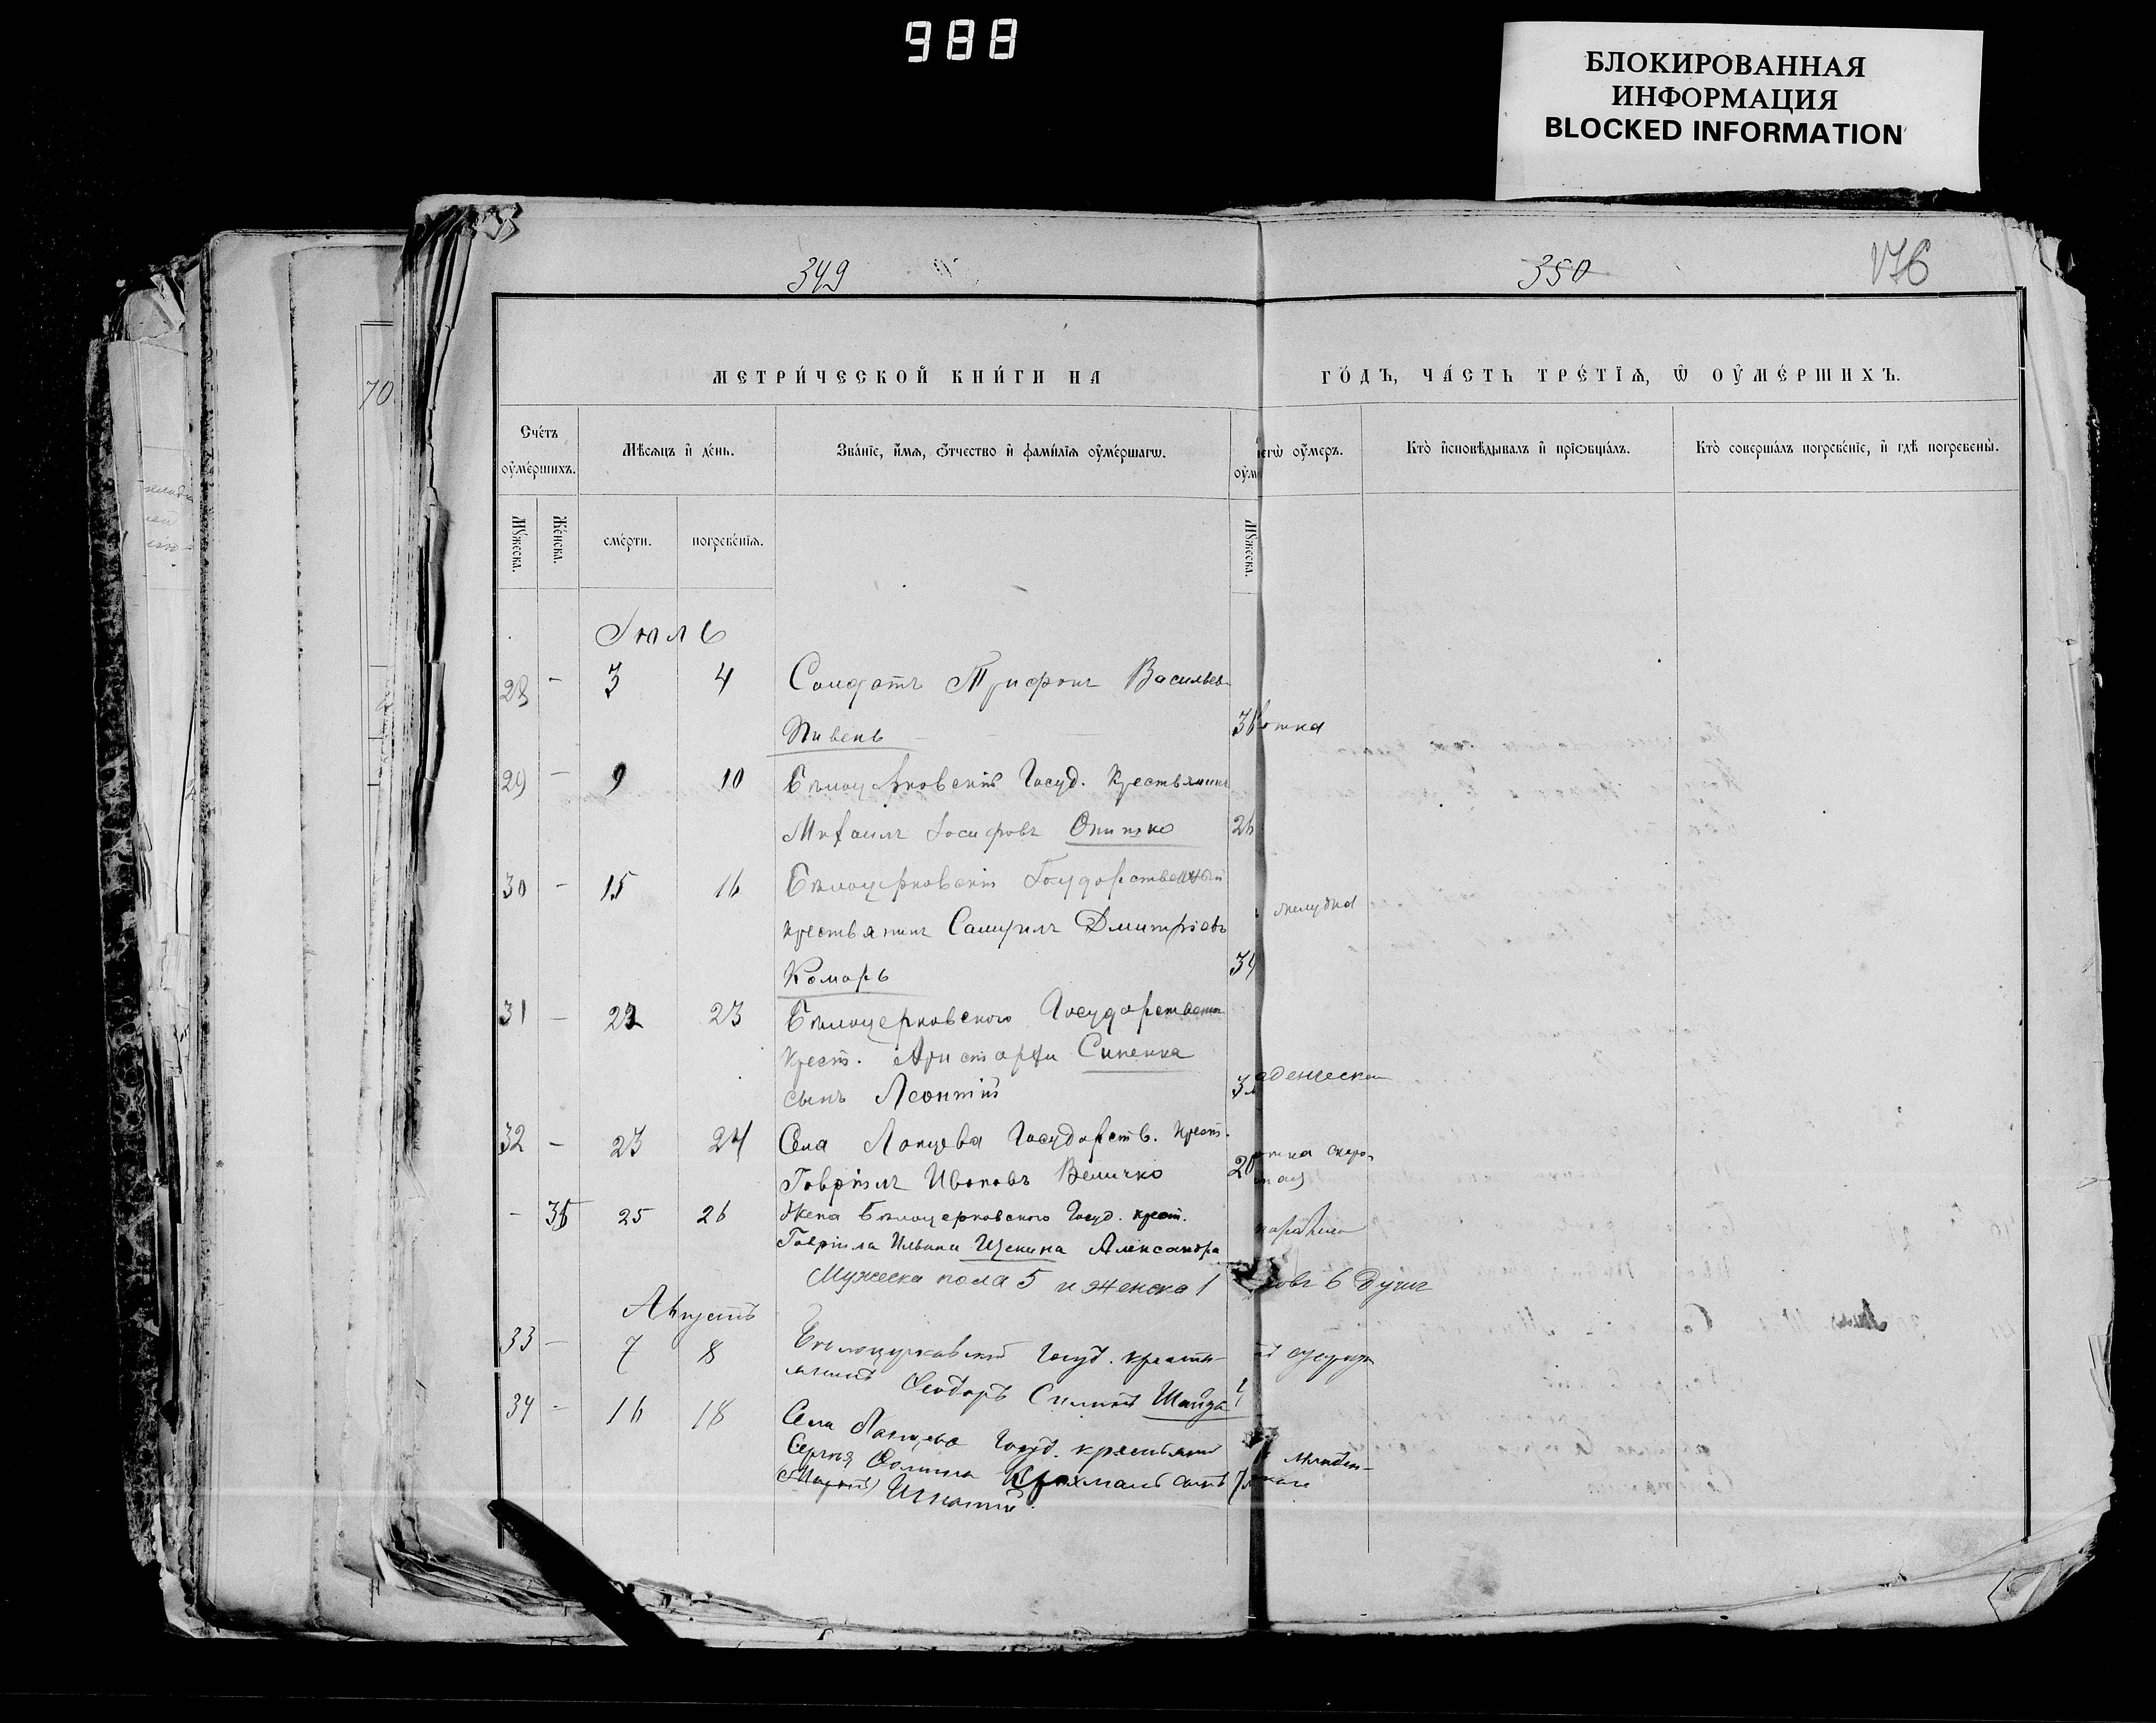 988
БЛОКИРОВАННАЯ
ИНФОРМАЦИЯ
BLOCKED INFORMATION
349
350
176
70
МЕТРИ́ЧЕСКОЙ КНИ́ГИ НА
ГО́ДЪ, ЧА́СТЬ ТРЕ́ТІѦ, Ѽ ОУ҆МЕ́РШИХЪ.
Сче́тъ
оу҆ме́ршихъ.
Мѣсѧцъ и҆ де́нь.
Зва́нїе, и҆́мѧ, ѻ҆́тчество и҆ фами́лїѧ оу҆ме́ршагѡ.
оу҆м
чегѡ̀ оу҆́меръ.
Кто̀ и҆сповѣ́дывалъ и҆ прїѡбща́лъ.
Кто̀ соверша́лъ погребе́нїе, и҆ гдѣ̀ погребены̀.
Мꙋ́жеска.
Же́нска.
сме́рти.
погребе́нїѧ.
Мꙋ́жеска.
Іюль
28 - 3 4 Солдатъ Трифонъ Васильевъ
Пивень 36
29 - 9 10 Бѣлоцерковскій Госуд. Крестьянинъ
Михаилъ Іосифовъ Онипко 26
30 - 15 16 Бѣлоцерковскій Государственный
крестьянинъ Самуилъ Дмитріевъ
желудка
Комарь 34
31 - 22 23 Бѣлоцерковского Государствен
Крест. Аристарха Сипенка
сынъ Леонтій 3
аденческая
32 - 23 24 Села Лапцева Государств. Крест.
Гавріилъ Ивановъ Величко 20
- 35 25 26 Жена Бѣлоцерковского Госуд. крест.
Гавріила Ильина Щекина Александра
Мужеска пола 5 и женска 1 6 душъ
Августъ
33 - 7 8 Бѣлоцерковскій Госуд. крестья-
янинъ Ѳеодоръ Шайда
34 - 16 18 Села Лапцева Госуд. крестьянина
Сергія Крахмаль сынъ 7
Игнатій